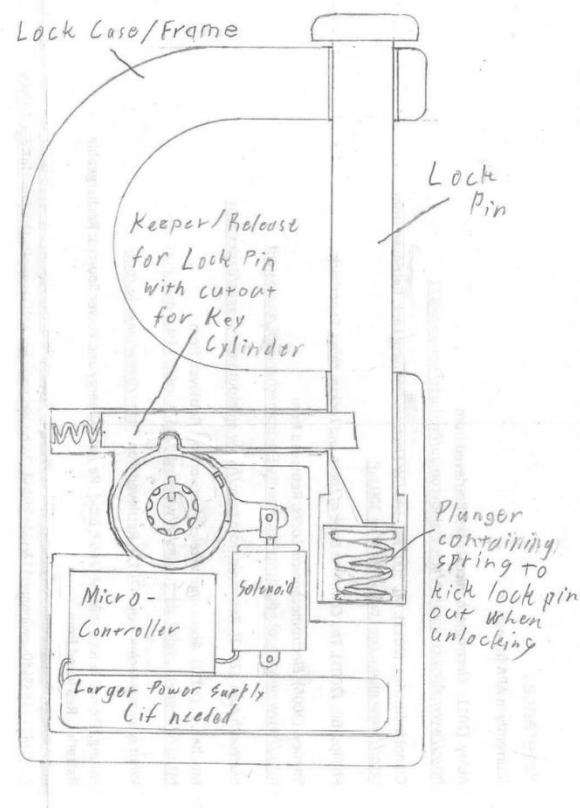 Lock Case/Frame
Lock
Pin
Keeper/Release
for Lock Pin
with cutout
for Key
Cylinder
Plunger
containing
spring to
kick lock pin
out when
unlocking
Micro-
Controller
Solenoid
Larger Power Supply
(if needed